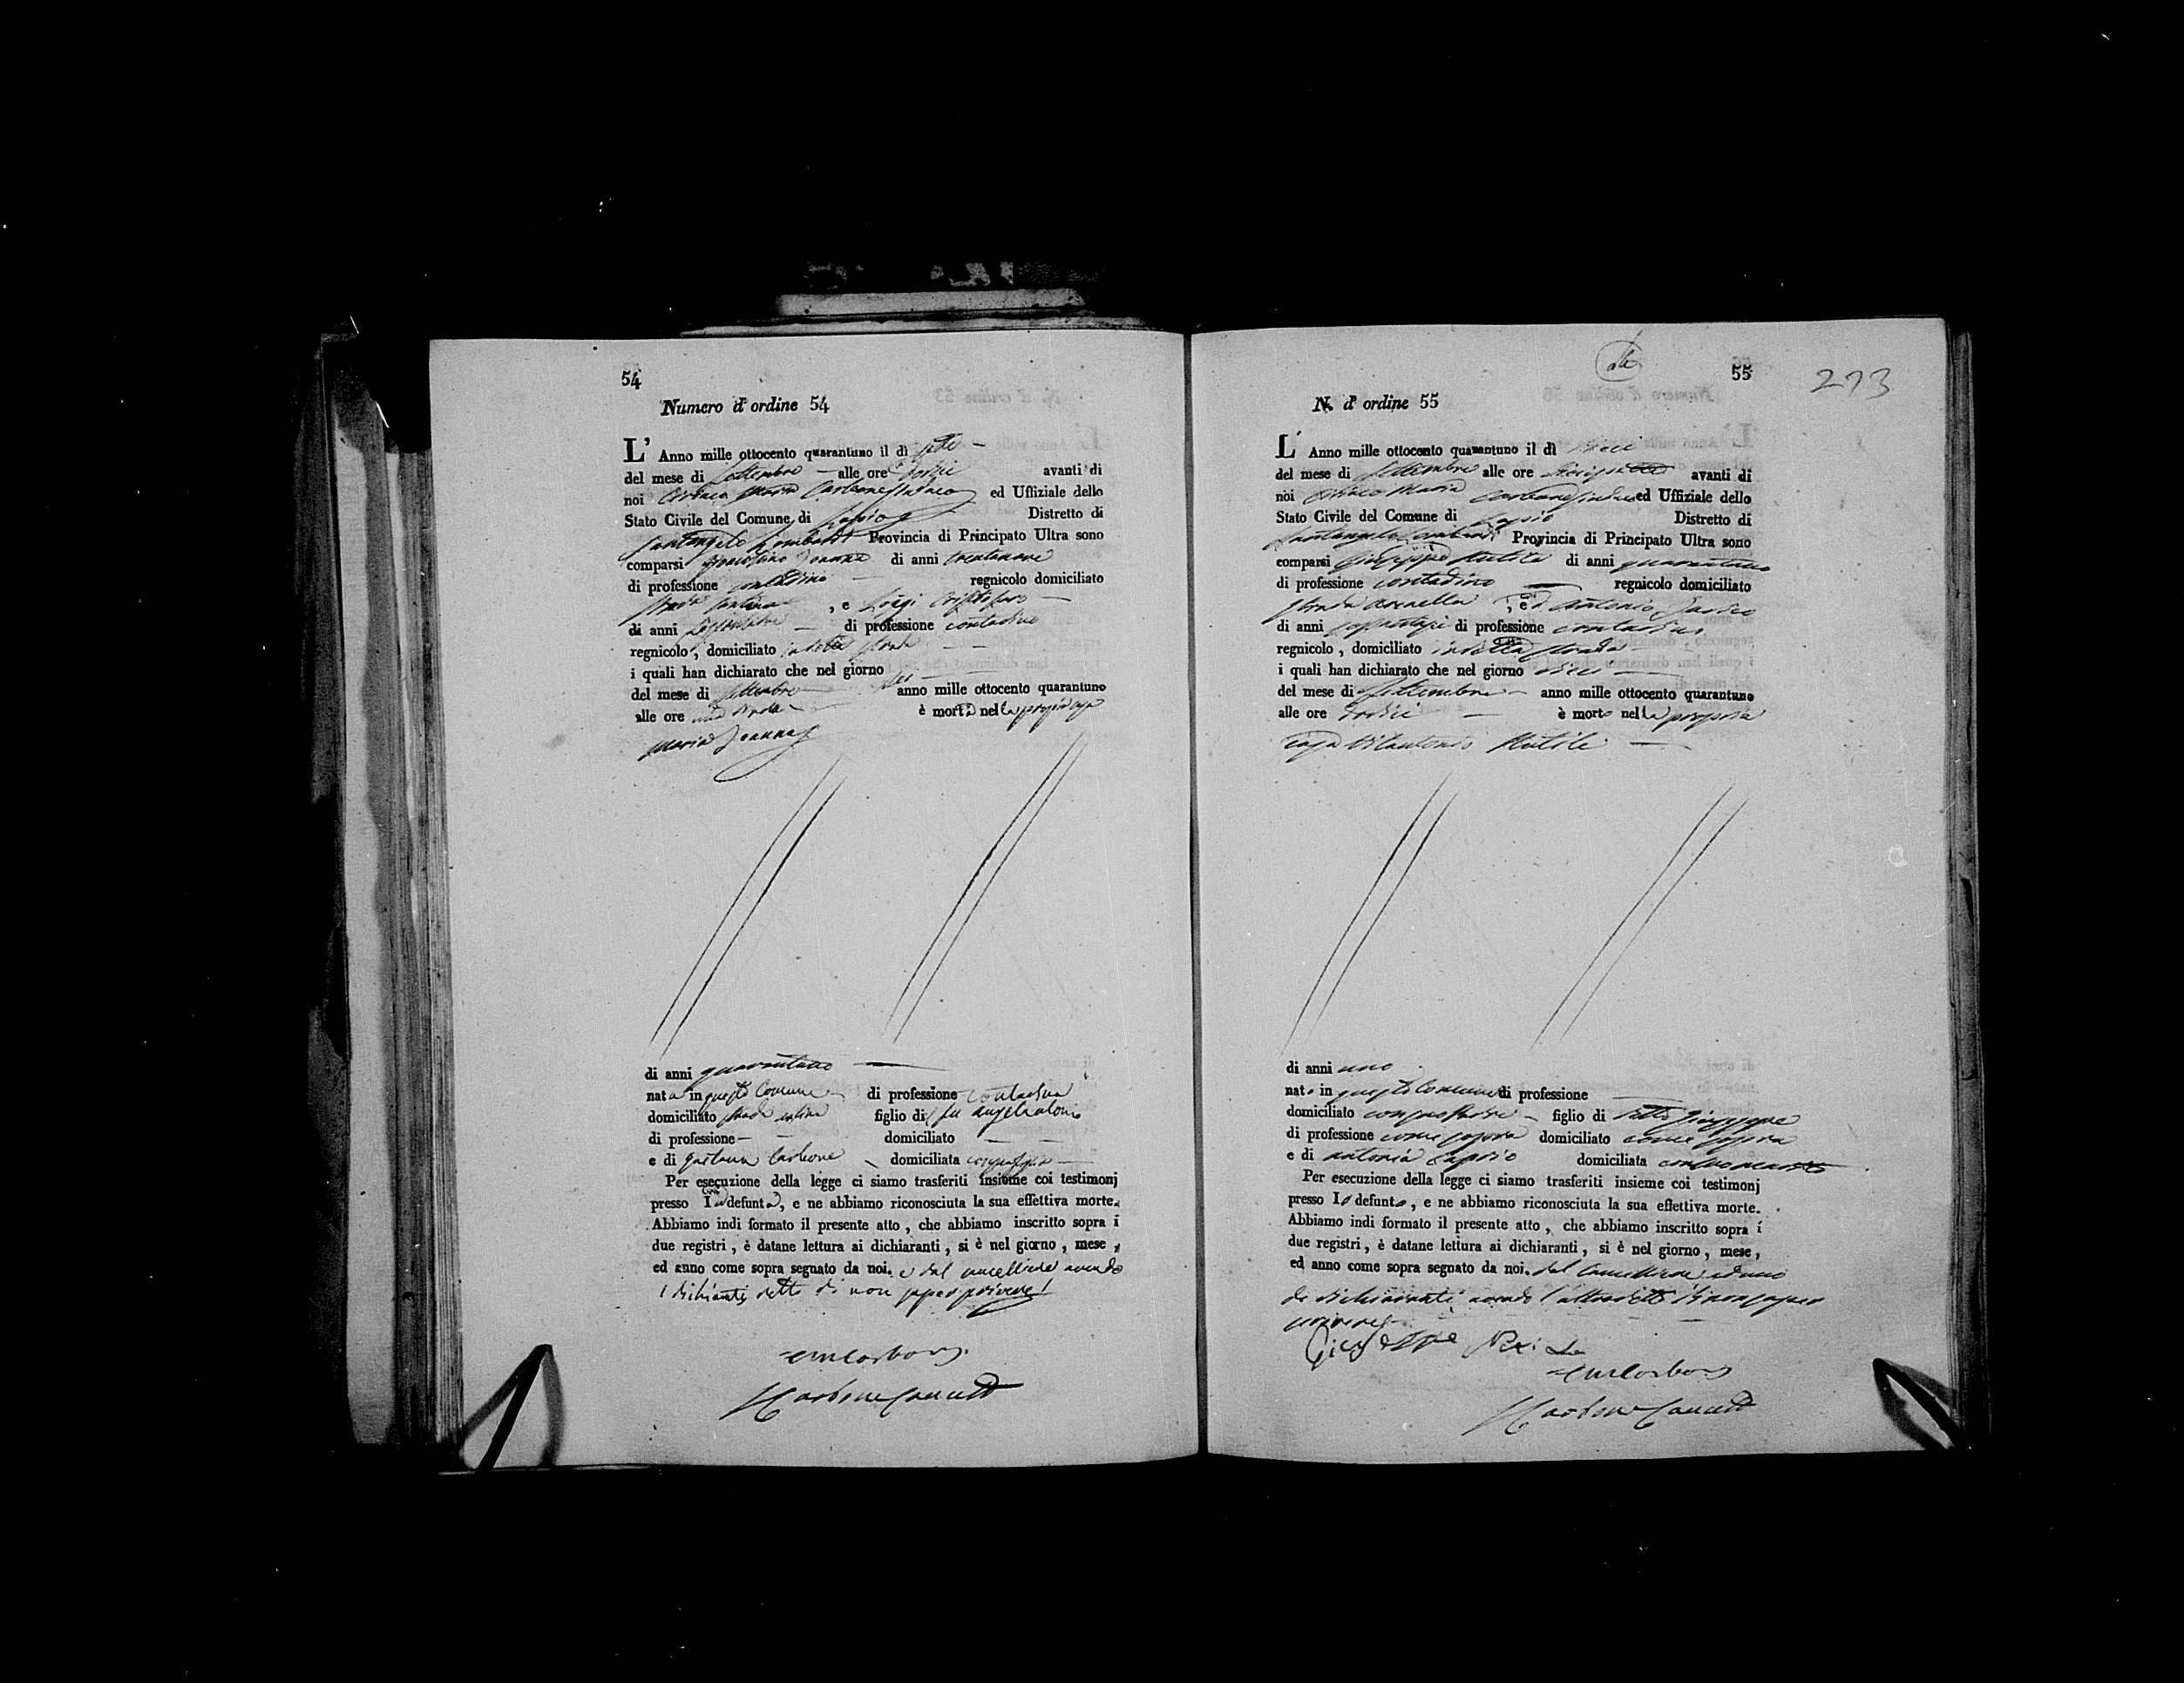 54
Numero d' ordine 54
L' Anno mille ottocento quarantuno il dì sette
del mese di Settembre alle ore dodici avanti di
noi Ciriaco Maria Carbone Sindaco ed Uffiziale dello
Stato Civile del Comune di Lapio Distretto di
Santangelo Lombardi Provincia di Principato Ultra sono
comparsi di anni trentanove
di professione contadino regnicolo domiciliato
strada , e Luigi Cristofaro
di anni di professione contadino
regnicolo, domiciliato in detta strada
i quali han dichiarato che nel giorno sei
del mese di Settembre anno mille ottocento quarantuno
alle ore è morta nella propria casa
Maria
di anni quarantuno
nata in questo Comune di professione contadina
domiciliato strada figlio di fu Angelantonio
di professione domiciliato
e di Gaetana Carbone domiciliata
Per esecuzione della legge ci siamo trasferiti insieme coi testimonj
presso la defunta, e ne abbiamo riconosciuta la sua effettiva morte.
Abbiamo indi formato il presente atto, che abbiamo inscritto sopra i
due registri, è datane lettura ai dichiaranti, si è nel giorno, mese,
ed anno come sopra segnato da noi. e dal cancelliere avendo
i dichianti detto di non saper scrivere
Carbone
55
273
N. d' ordine 55
L' Anno mille ottocento quarantuno il dì dieci
del mese di Settembre alle ore avanti di
noi Ciriaco Maria Carbone Sindaco ed Uffiziale dello
Stato Civile del Comune di Lapio Distretto di
Santangelo Lombardi Provincia di Principato Ultra sono
comparsi Giuseppe di anni quarantuno
di professione contadino regnicolo domiciliato
strada , ed Antonio
di anni di professione contadino
regnicolo, domiciliato in detta strada
i quali han dichiarato che nel giorno dieci
del mese di Settembre anno mille ottocento quarantuno
alle ore dodici è morto nella propria
casa Vitantonio
di anni uno
nato in questo Comune di professione
domiciliato con suo Padre figlio di detto Giuseppe
di professione come sopra domiciliato come sopra
e di Antonia Caprio domiciliata con suo marito
Per esecuzione della legge ci siamo trasferiti insieme coi testimonj
presso lo defunto, e ne abbiamo riconosciuta la sua effettiva morte.
Abbiamo indi formato il presente atto, che abbiamo inscritto sopra i
due registri, è datane lettura ai dichiaranti, si è nel giorno, mese,
ed anno come sopra segnato da noi. dal Cancelliere ed uno
de dichiaranti avendo l'altro detto di non saper
scrivere
Carbone